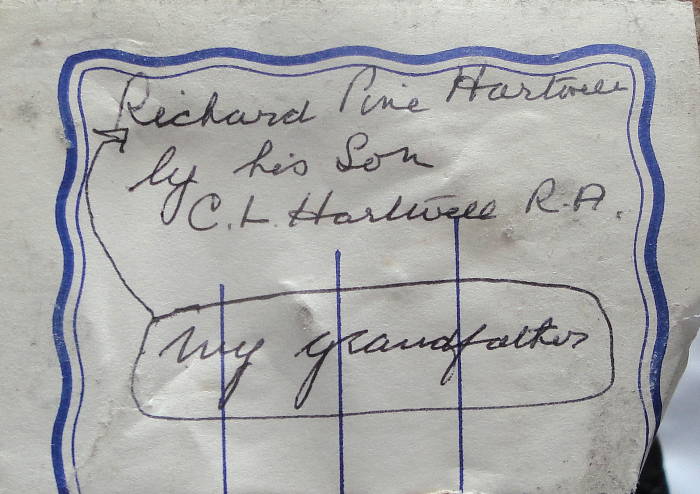 Richard Pine Hartwell
by his Son
C. L. Hartwell R.A.
my grandfather